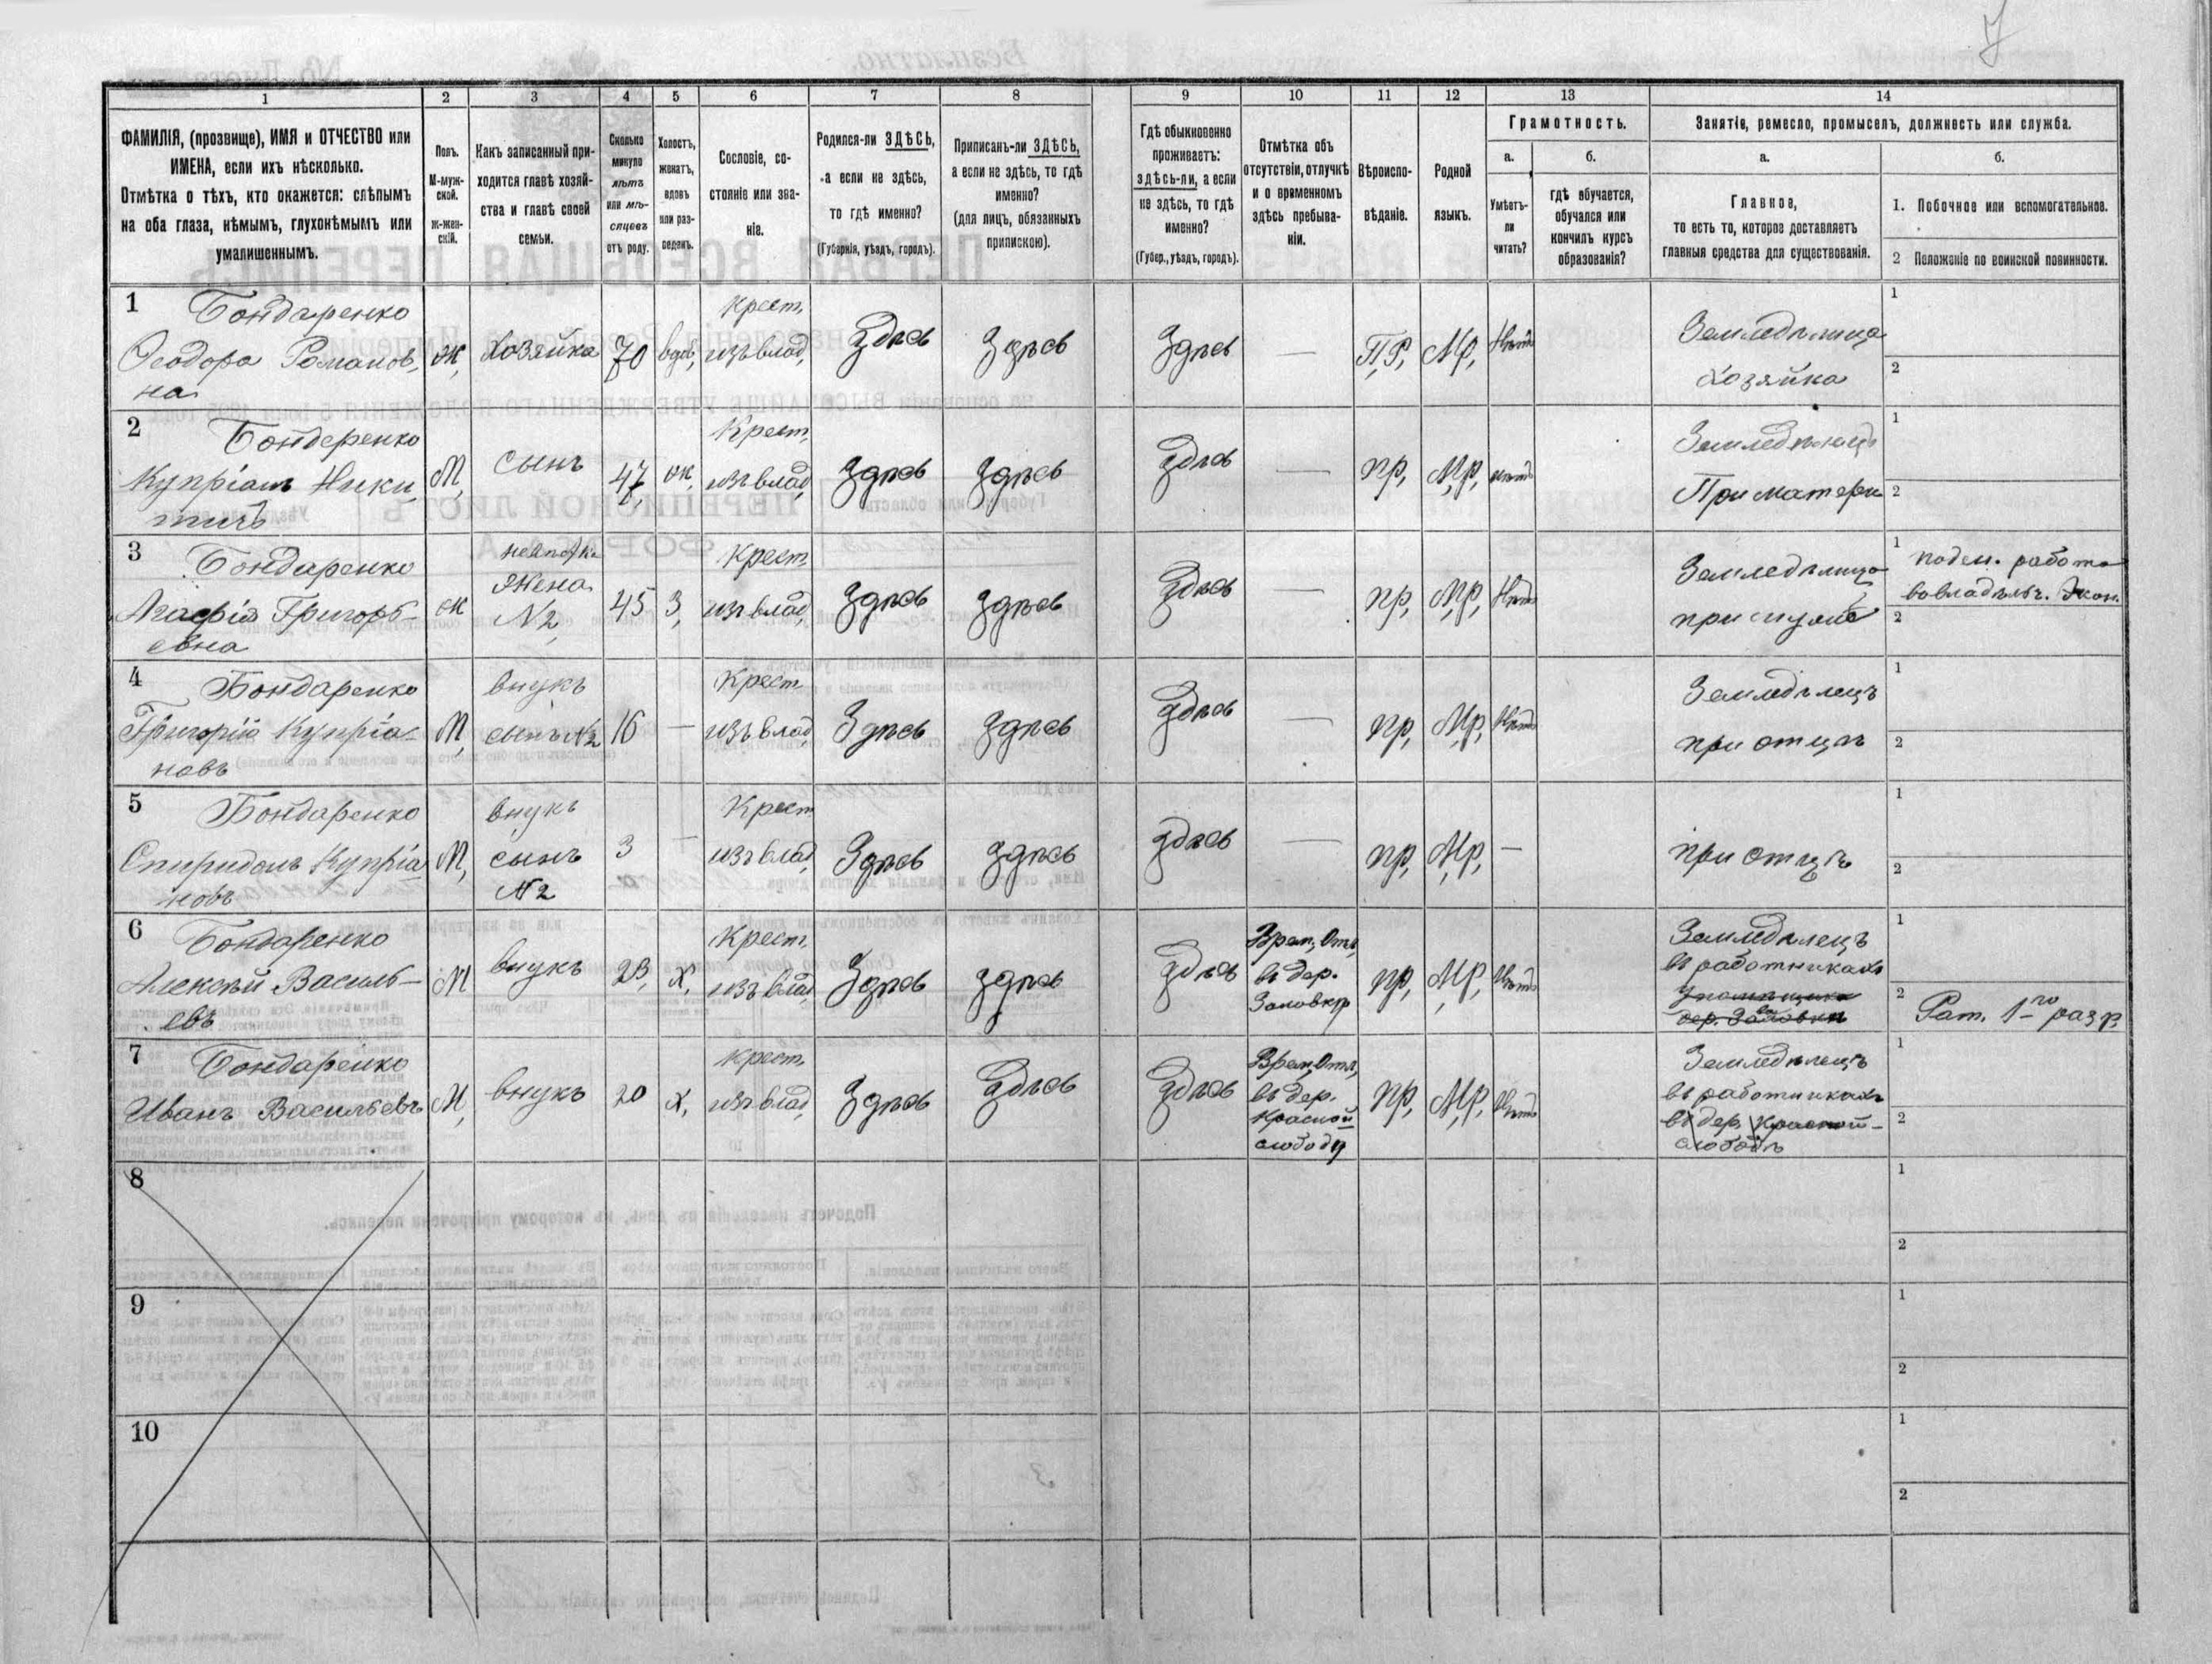 7
1
2
3
4
5
6
7
8
9
10
11
12
13
14
ФАМИЛІЯ, (прозвище), ИМЯ и ОТЧЕСТВО или
ИМЕНА, если ихъ нѣсколько.
Отмѣтка о тѣхъ, кто окажется: слѣпымъ
на оба глаза, нѣмымъ, глухонѣмымъ или
умалишеннымъ.
Полъ.
М-муж-
ской.
Ж-жен-
скій.
Какъ записанный при-
ходится главѣ хозяй-
ства и главѣ своей
семьи.
Сколько
минуло
лѣтъ
или мѣ-
сяцевъ
отъ роду.
Холостъ,
женатъ,
вдовъ
или раз-
веденъ.
Сословіе, со-
стояніе или зва-
ніе.
Родился-ли ЗДѢСЬ,
а если не здѣсь,
то гдѣ именно?
(Губернія, уѣздъ, городъ).
Приписанъ-ли ЗДѢСЬ,
а если не здѣсь, то гдѣ
именно?
(для лицъ, обязанныхъ
припискою).
Гдѣ обыкновенно
проживаетъ:
здѣсь-ли, а если
не здѣсь, то гдѣ
именно?
(Губер., уѣздъ, городъ).
Отмѣтка объ
отсутствіи, отлучкѣ
и о временномъ
здѣсь пребыва-
ніи.
Вѣроиспо-
вѣданіе.
Родной
языкъ.
Грамотность.
а.
б.
Умѣетъ-
ли
читать?
гдѣ обучается,
обучался или
кончилъ курсъ
образованія?
Занятіе, ремесло, промыселъ, должность или служба.
а.
б.
Главное,
то есть то, которое доставляетъ
главныя средства для существованія.
1. Побочное или вспомогательное.
2 Положеніе по воинской повинности.
1 Бондаренко
Ѳеодора Романов,
на
ж,
Хозяйка
70
вдов,
крест,
изъ влад,
Здѣсь
Здѣсь
Здѣсь
—
П,Р,
М,Р,
Нѣтъ
Земледѣлица
Хозяйка
1
2
2 Бондаренко
Купріанъ Ники
тичъ
М,
сынъ
47,
ж,
Крест,
изъ влад,
Здѣсь
Здѣсь
Здѣсь
—
пр,
М,р,
нѣтъ
Земледѣлецъ
При матери
1
2
3 Бондаренко
Агафія Григорь-
евна
ж
невѣстка
Жена
№2,
45
З,
Крест,
изъ влад,
Здѣсь
Здѣсь
Здѣсь
—
пр,
М,р,
Нѣтъ
Земледѣлица
при мужѣ
1 поден. работа
во владѣльч. Экон.
2
4 Бондаренко
Григорій Купріа-
новъ
М,
внукъ
сынъ №2
16
—
Крест
изъ влад,
Здѣсь
здѣсь
Здѣсь
—
пр,
М,р,
Нѣтъ
Земледѣлецъ
при отцѣ
1
2
5 Бондаренко
Спиридонъ Купріа
новъ
М,
внукъ
сынъ
№2
3
—
Крест
изъ влад,
Здѣсь
здѣсь
здѣсь
—
пр,
М,р,
—
при отцѣ
1
2
6 Бондаренко
Алексѣй Василь-
евъ
М
внукъ
23,
х,
Крест,
изъ влад,
Здѣсь
здѣсь
здѣсь
Врем, Отл,
въ дер.
пр,
М,р,
Нѣтъ
Земледѣлецъ
въ работникахъ
1
2 Рат. 1го разр
7 Бондаренко
Иванъ Васильевъ
М,
внукъ
20
х,
крест,
изъ влад,
Здѣсь
Здѣсь
Здѣсь
Врем, Отл,
въ дер.
Красной
слободѣ
пр,
М,р,
Нѣтъ
Земледѣлецъ
въ работникахъ
въ дер. Красной-
слободѣ
1
2
8
1
2
9
1
2
10
1
2